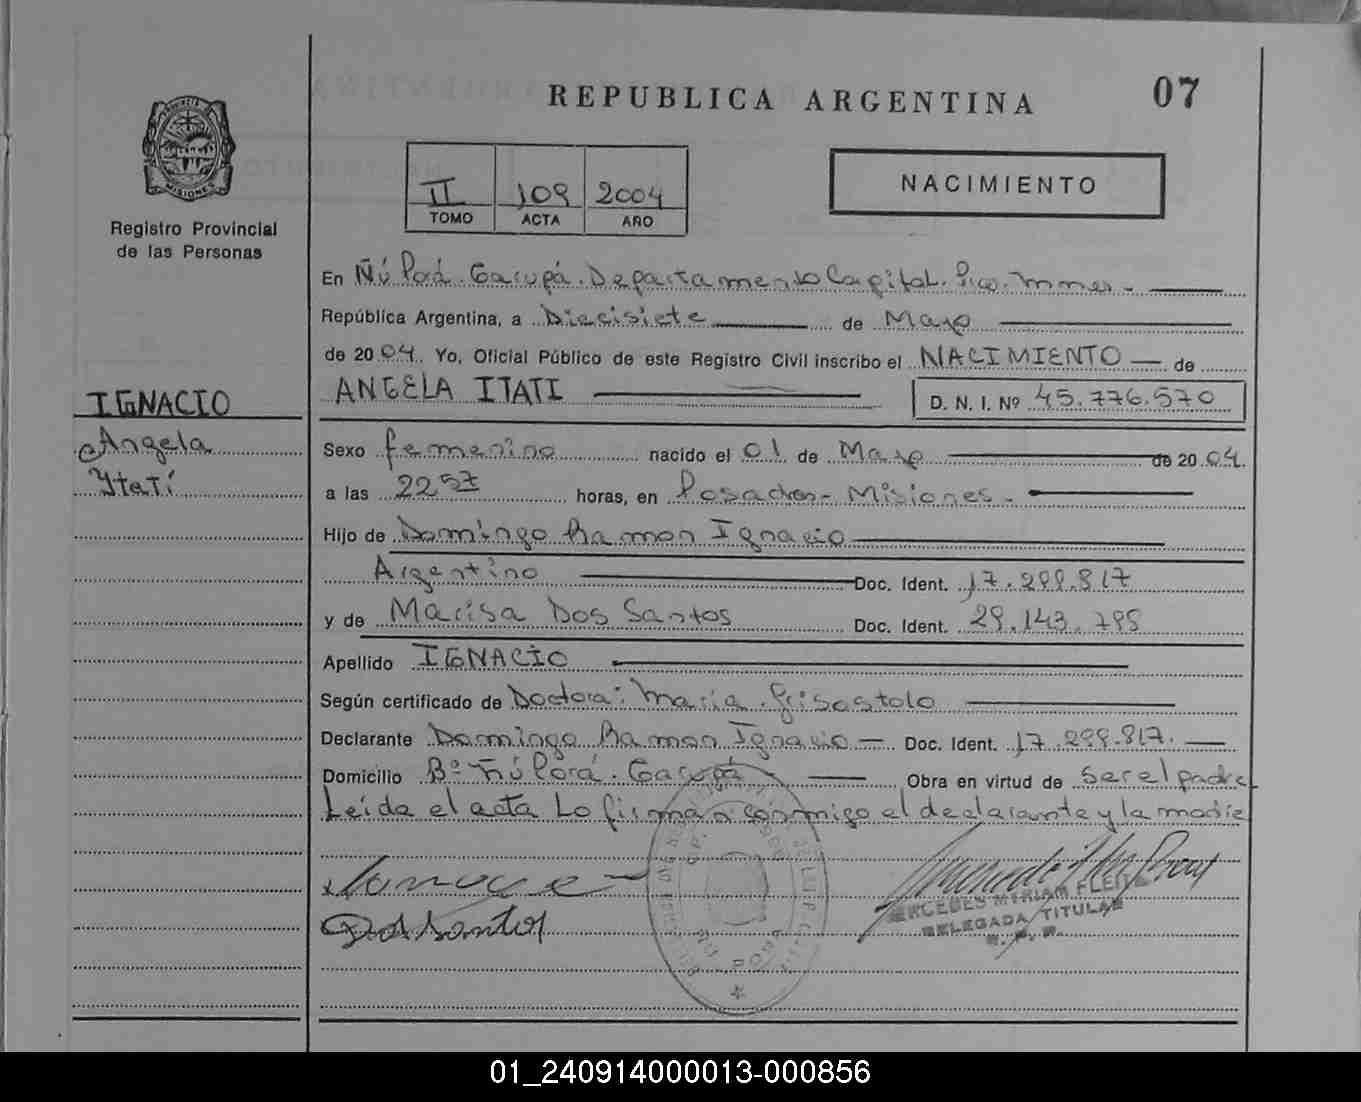 REPUBLICA ARGENTINA
07
MISIONES
Registro Provincial
de las Personas
II 109 2004
TOMO ACTA AÑO
NACIMIENTO
En Ñú Porá. Garupá. Departamento Capital. Pcia. Mnes.
República Argentina, a Diecisiete de Mayo
de 2004. Yo, Oficial Público de este Registro Civil inscribo el NACIMIENTO de
ANGELA ITATI
D. N. I. Nº 45.776.570
IGNACIO
Angela
Ytatí
Sexo femenino nacido el 01 de Mayo de 2004.
a las 22 57 horas, en Posadas - Misiones.
Hijo de Domingo Ramon Ignacio
Argentino Doc. Ident. 17.299.817
y de Marisa Dos Santos Doc. Ident. 29.143.798
Apellido IGNACIO
Según certificado de Doctora: Maria Grisostolo
Declarante Domingo Ramon Ignacio Doc. Ident. 17.299.817.
Domicilio Bº Ñú Porá. Garupá Obra en virtud de ser el padre
Leída el acta Lo firman conmigo el declarante y la madre
Dos Santos
MERCEDES MYRIAM FLEITA
DELEGADA TITULAR
R. P. P.
ÑU PORA
01_240914000013-000856